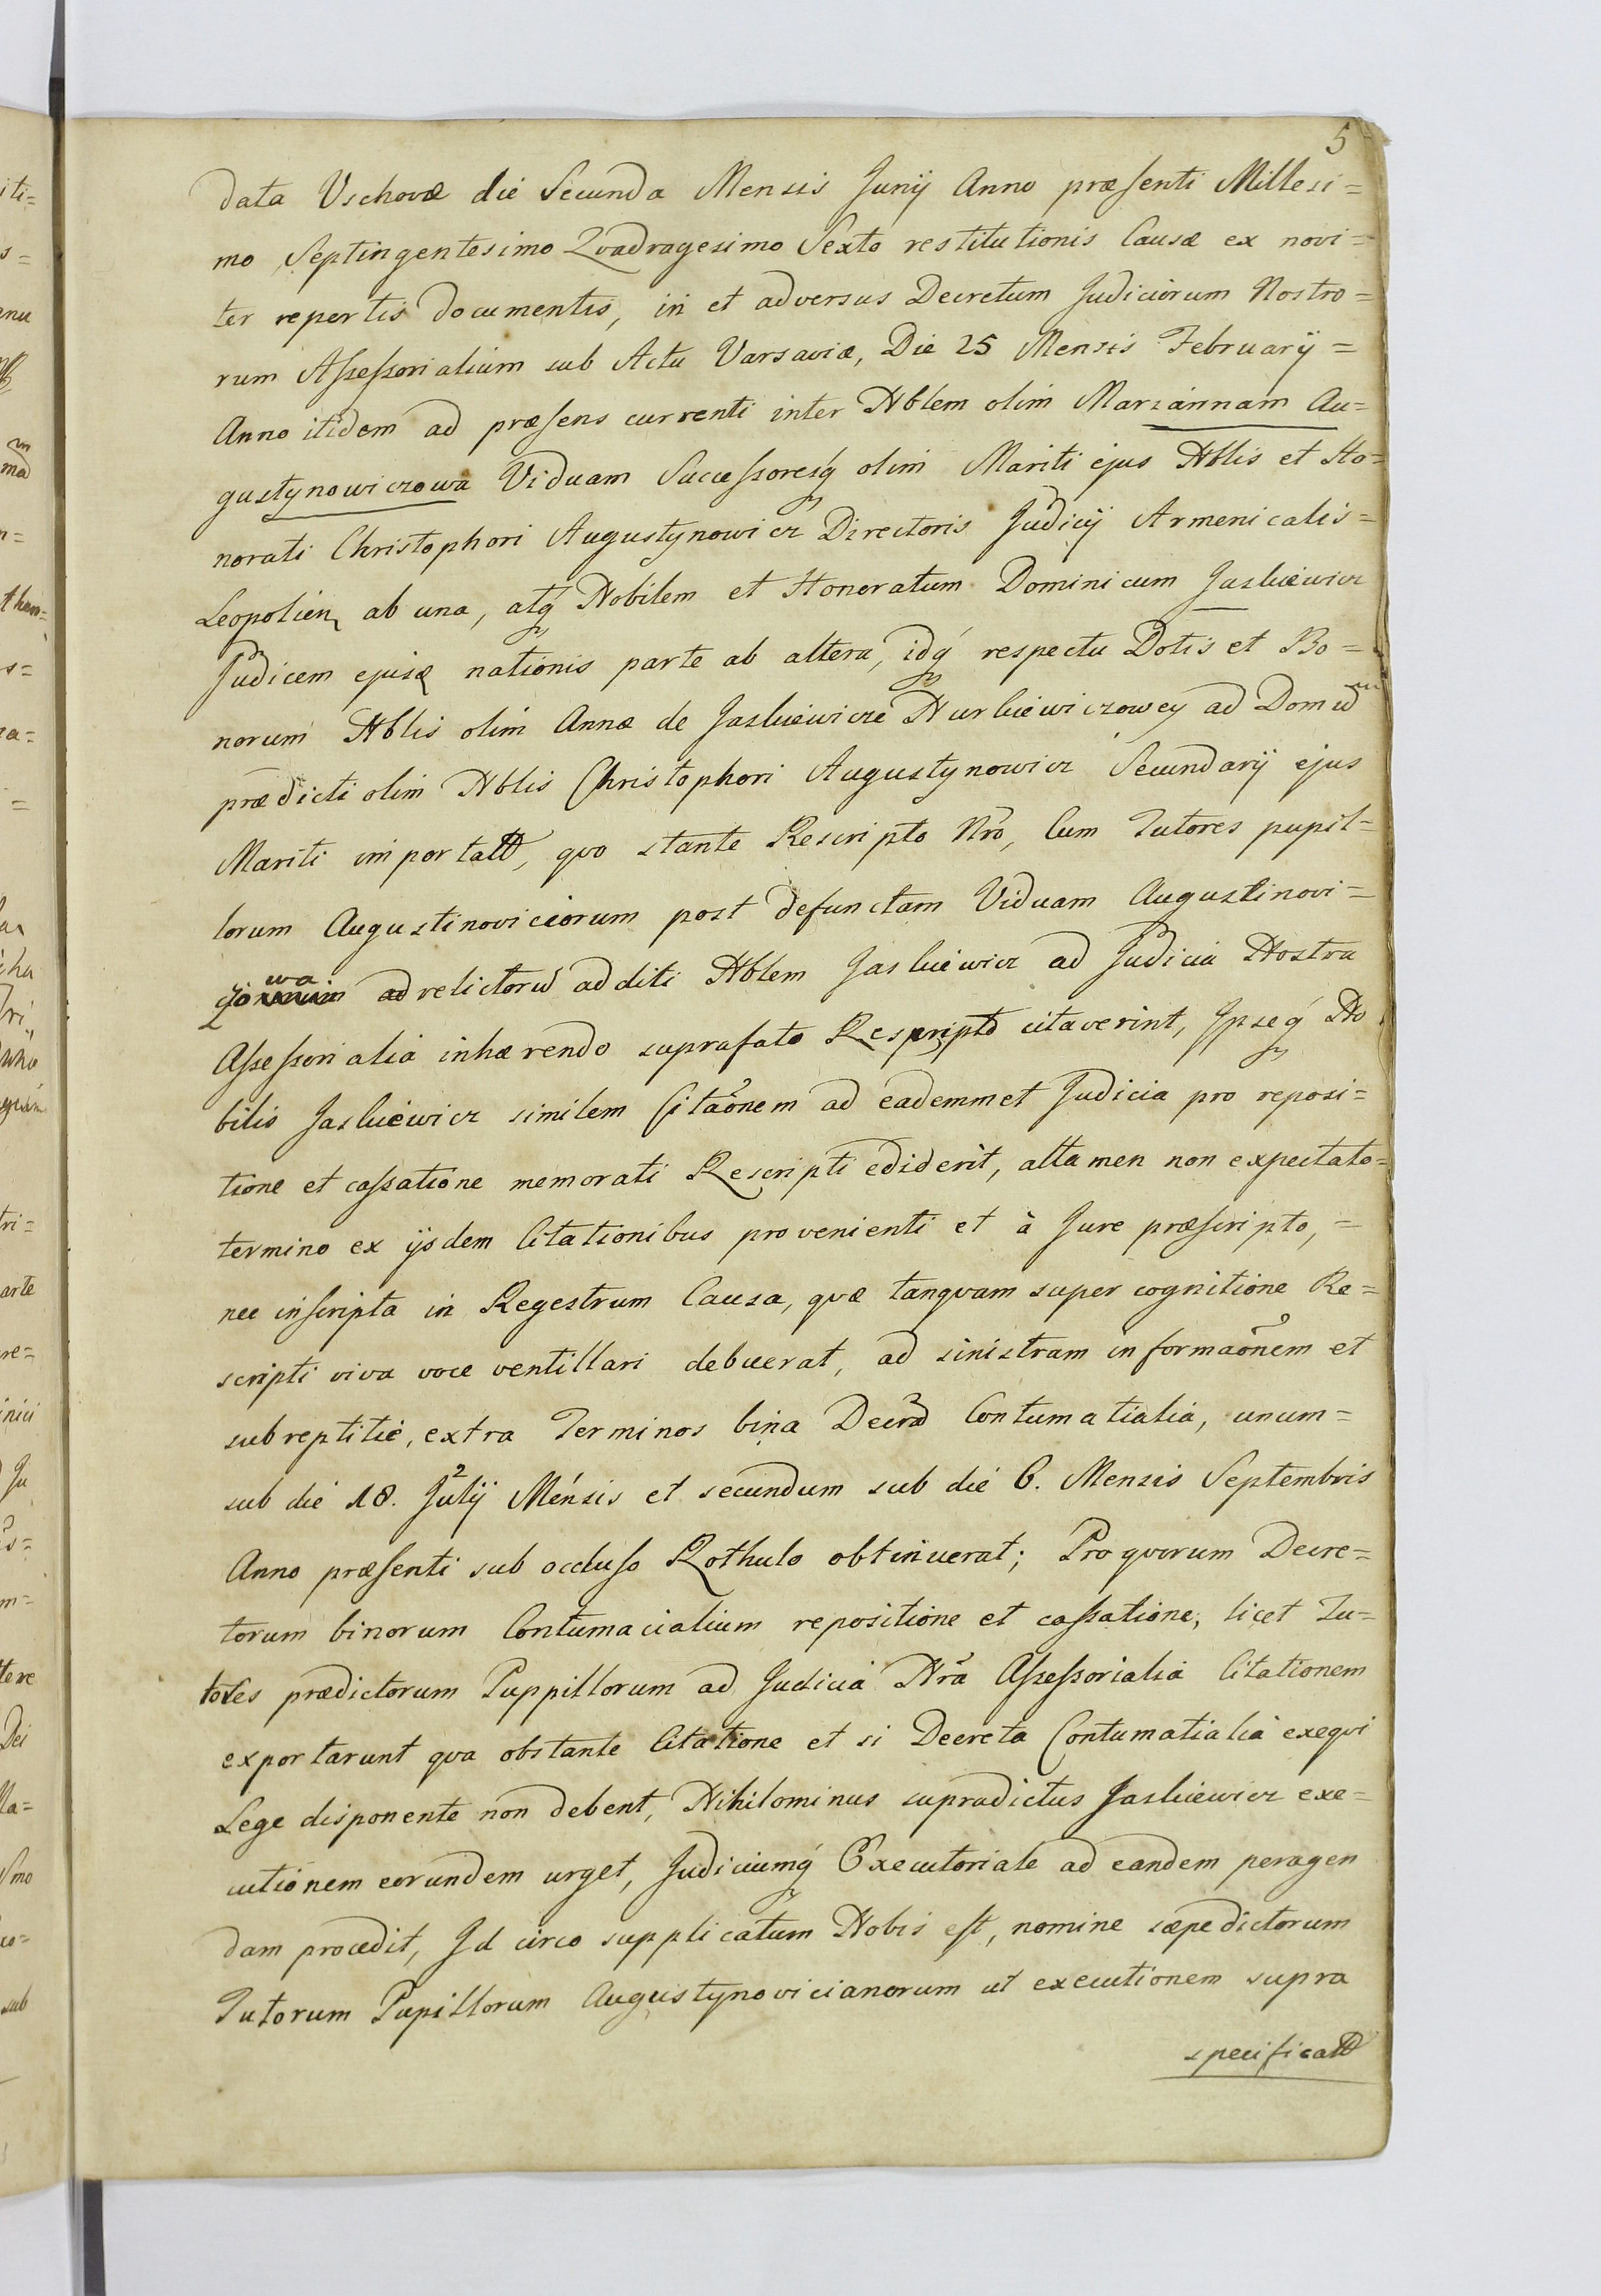 5
data Vschovæ die Secunda Mensis Junij Anno præsenti Millesi=
mo Septingentesimo Qvadragesimo Sexto restitutionis Causæ ex novi=
ter repertis documentis, in et adversus Decretum Judiciorum Nostro=
rum Assessorialium sub Actu Varsaviæ, Die 25 Mensis Februarij =
Anno itidem ad præsens currenti inter Nblem olim Mariannam Au=
gustynowiczowa Viduam Successoresq́ olim Mariti ejus Nblis et Ho=
norati Christophori Augustynowicz Directoris Judicij Armenicalis=
Leopolien, ab una, atq́ Nobilem et Honoratum Dominicum Jaskiewicz
Judicem ejusæ nationis parte ab altera, idq́ respectu Dotis et Bo=
norum Nblis olim Annæ de Jaskiewicze Nurkiewiczowey ad Domū
prædicti olim Nblis Christophori Augustynowicz Secundarij ejus
Mariti importatt, qvo stante Rescripto Nr̃o, Cum Tutores pupil=
lorum Augustinoviciorum post defunctam Viduam Augustinovi=
wa
relictorū additi Nblem Jaskiewicz ad Judicia Nostra
Assessorialia inhærendo suprafato Rescripto citaverint, Ipseq́ No
bilis Jaskiewicz similem Citãonem ad eademmet Judicia pro reposi=
tione et cassatione memorati Rescripti ediderit, attamen non expectato=
termino ex ijsdem Citationibus provenienti et à Jure præscripto, =
nec inscripta in Regestrum Causa, qvæ tanqvam super cognitione Re=
scripti viva voce ventillari debuerat, ad sinistram informãonem et
subreptitie, extra Terminos bina Decr̃a Contumatialia, unum=
sub die 18. Julij Mensis et secundum sub die 6. Mensis Septembris
Anno præsenti sub occluso Rothulo obtinuerat; Pro qvorum Decre=
torum binorum Contumacialium repositione et cassatione, licet Tu=
tores prædictorum Puppillorum ad Judicia Nr̃a Assessorialia Citationem
exportarunt qva obstante Citatione et si Decreta Contumatialia exeqvi
Lege disponente non debent, Nihilominus supradictus Jaskiewicz exe=
cutionem eorundem urget, Judiciumq́ Executoriale ad eandem peragen
dam procedit, Id circo supplicatum Nobis est, nomine sæpedictorum
Tutorum Pupillorum Augustynovicianorum ut executionem supra
specificatt